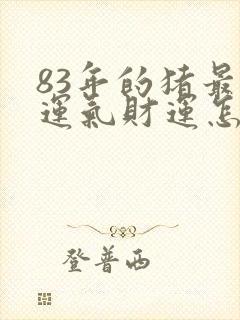 83年的猪最
運氣財運怎
登普西